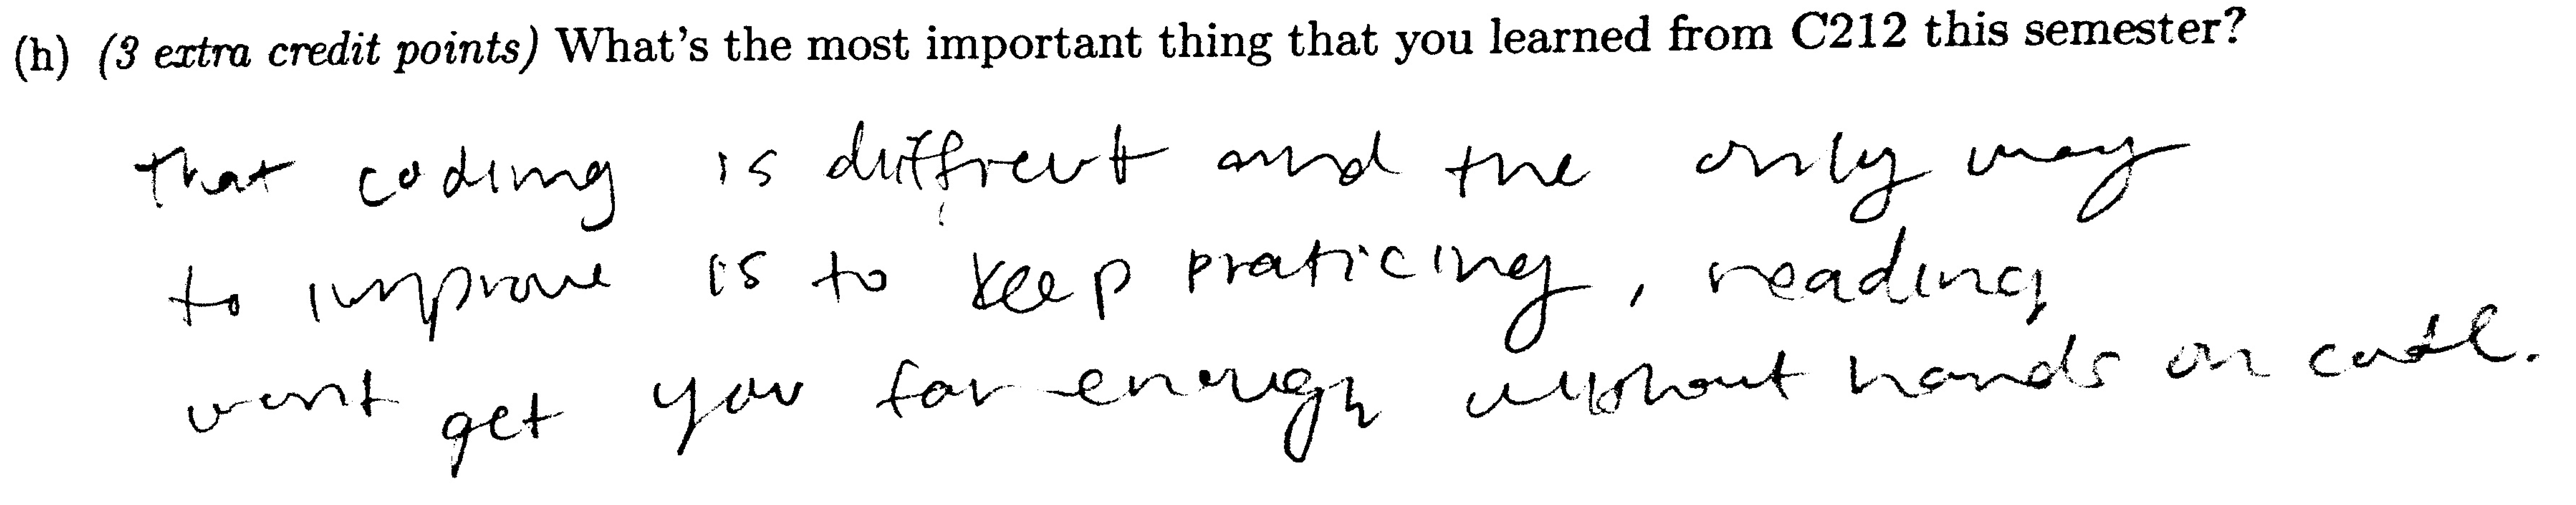 (h) (3 extra credit points) What's the most important thing that you learned from C212 this semester?
that coding is diffrent and the only way
to improve is to keep praticing, reading
wont get you far enough without hands on code.